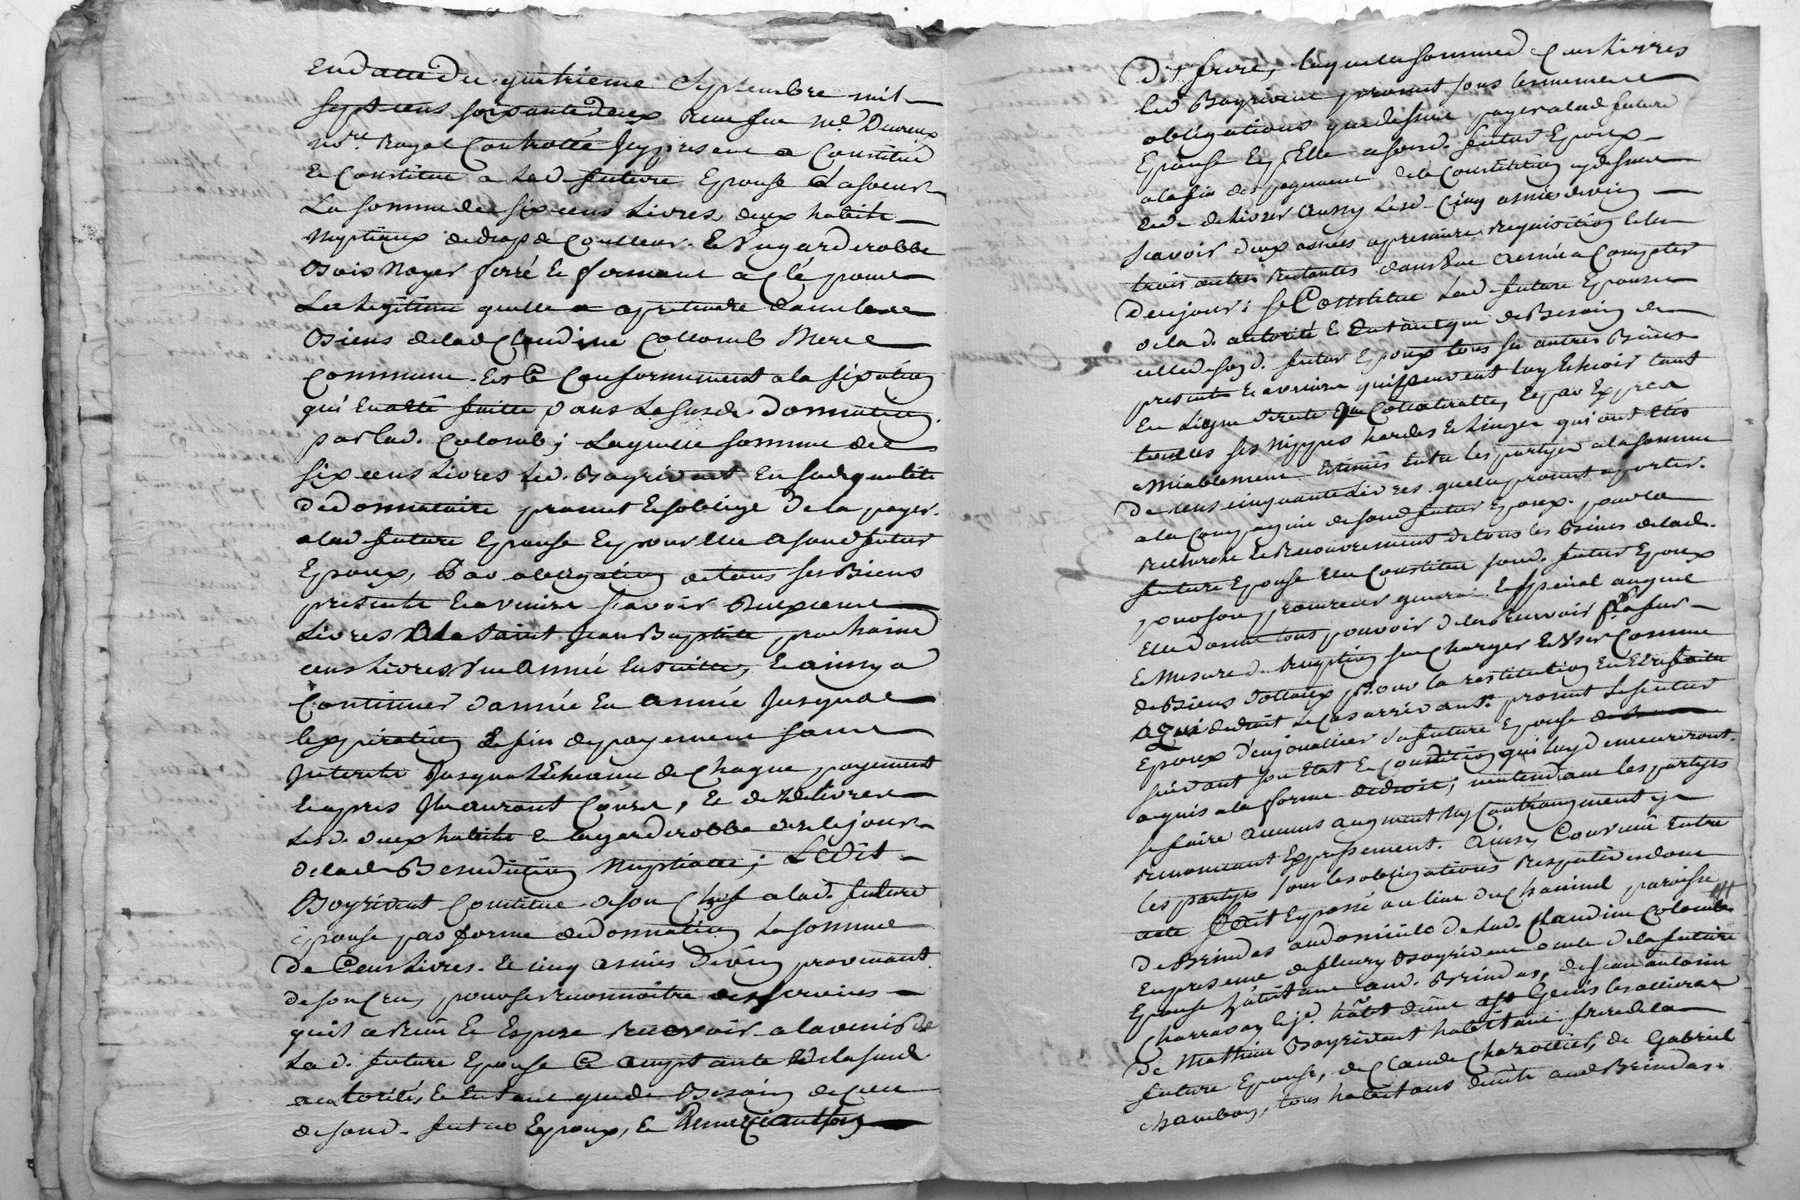 En datte du quatrieme septembre mil
sept cens soixante deux receu feu me. Devreux
nore. Royal Controllé Icy presente a Constitué
Et Constitue a Lad. future Epouse sa soeur
La somme de six cens Livres, deux habits
Nuptiaux de drap de Coulleur. Et Un garderobbe
Bois Noyer ferré et fermant a clé pour
La Legitime quelle a apretendre dans les
Biens de lad. Claudine Collomb Mere
commune. Et Ce Conformement a la fixation
qui En a Eté faitte dans la susd. Donnation
par lad. Colomb; Laquelle somme de
six cens Livres Led. Bayrivent En sad. qualité
de donnataire promet Et soblige de la payer
a lad. future Epouse Et pour Elle a sond. futur
Epoux, par obligation de tous ses Biens
presents Et avenirs scavoir Deux cens
Livres a la saint Jean Baptiste prochaine
cens Livres Une Année En suitte, Et ainsy a
Continuer d'année En année Jusqua
lexpiration Et fin de payement sans
Interets Jusqua l'Echeance de Chaque payement
Et apres Ils auront Cours, Et de delivrer
Lesd. deux habits Et le garderobbe des le jour
de la Benediction Nuptialle; Ledit
Bayrivent Constitue de son Chef a lad. future
Epouse par forme de donnation La somme
De Cens Livres. Et cinq asnées De vin provenant
de son Cru, pour se reconnoitre des services
quil a Reçu Et Espere recevoir a lavenir de
La d. future Epouse Ce acceptante Et de la susd.
autorité, Et En tant que de Besoin de celle
de sond. futur Epoux, Et Remerciant son
Dit frere, laquelle somme de Cens Livres
led. Bayrivent promet sous les memes
obligations que dessus payer a lad. future
Epouse Et p. Elle a sond. futur Epoux
a la fin des payements de la Constitution cy dessus
Et de delivrer Aussy Lesd. Cinq asnées de vin
scavoir deux asnées a premiere requisition Et les
trois autres restantes dans Une Année a Compter
De ce jour; se Constitue Lad. future Epouse
de la d. autorité Et En tant que de Besoin de
celle de sond. futur Epoux tous ses autres Biens
presents Et avenirs qui peuvent luy Echeoir tant
En Ligne directe que Collateralle, Et par Exprés
toutes ses Nippes hardes Et Linges qui ont Etés
amiablement Estimés Entre les partyes a la somme
De cens cinquante Livres. quelle promet apporter
a la Compagnie de sond. futur Epoux. pour la
recherche Et Recouvrement de tous les Biens de lad.
future Epouse Elle Constitue sond. futur Epoux
pour son procureur general Et special auquel
Elle donne tous pouvoir de les Recevoir p. a fur
Et Mesure de Reception sen Charger Et User Comme
de Biens dottaux, pour la restitution En Etre faitte
a qui de droit Le cas arrivant. promet Le futur
Epoux D'enjoualler sa future Epouse
suivant son Etat Et Condition qui luy demeureront
acquis a la forme de droit; n'entendant les partyes
se faire aucuns augment ny Contraugment y
renonceant Expressement. Ainsy Convenu Entre
les partyes sous les obligations Respectives dont
acte fait Et passé au lieu du Chamel paroisse
De Brindas au domicile de lad. Claudine Colomb
En presence de fleury Bayrivent oncle de la future
Epouse habitant aud. Brindas, de Jean antoine
Charravay Lejé. habt. dime a St Genis les ollieres
de Mathieu Bayrivent habitant frere de la
future Epouse, de Claude Chazottier, de Gabriel
chambon, tous habitans dudit aud. Brindas.